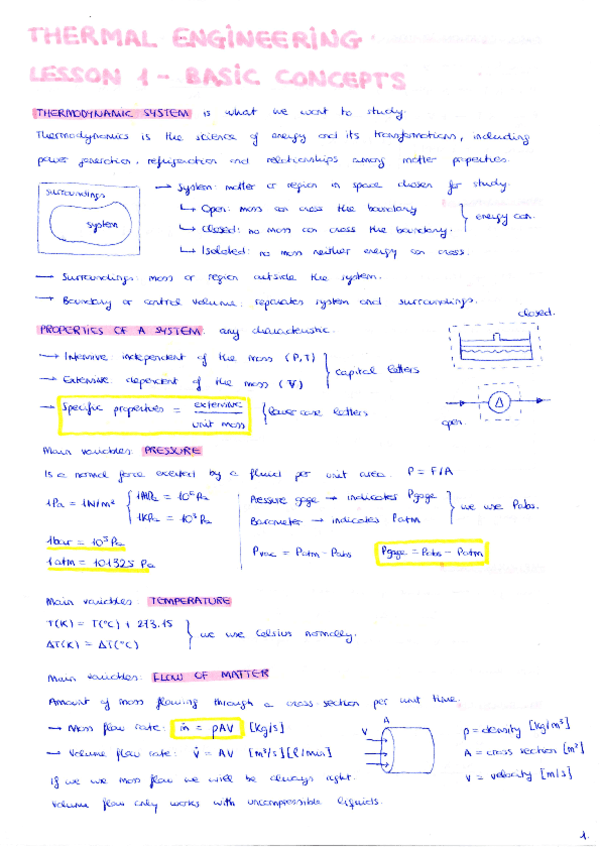 THERMAL ENGINEERING
LESSON 1 - BASIC CONCEPTS
THERMODYNAMIC SYSTEM is what we want to study.
Thermodynamics is the science of energy and its transformations, including
power generation, refrigeration and relationships among matter properties.
surroundings
system
→ System: matter or region in space chosen for study.
↳ Open: mass can cross the boundary
↳ Closed: no mass can cross the boundary. } energy can.
↳ Isolated: no mass neither energy can cross.
→ Surroundings: mass or region outside the system.
→ Boundary or control volume: separates system and surroundings.
closed.
PROPERTIES OF A SYSTEM: any characteristic.
→ Intensive: independent of the mass (P,T)
→ Extensive: dependent of the mass (V) } capital letters
→ Specific properties = extensive / unit mass { lower case letters
Δ
open.
Main variables: PRESSURE
Is a normal force exerted by a fluid per unit area. P = F/A
1Pa = 1N/m² { 1MPa = 10⁶ Pa
1KPa = 10³ Pa
1bar = 10⁵ Pa
1atm = 101325 Pa
Pressure gage → indicates Pgage
Barometer → indicates Patm } we use Pabs.
Pvac = Patm - Pabs
Pgage = Pabs - Patm
Main variables: TEMPERATURE
T(K) = T(ºC) + 273.15
ΔT(K) = ΔT(ºC) } we use Celsius normally.
Main variables: FLOW OF MATTER
Amount of mass flowing through a cross-section per unit time.
→ Mass flow rate: ṁ = ρAV [Kg/s]
→ Volume flow rate: V̇ = AV [m³/s][l/min]
If we use mass flow we will be always right.
Volume flow only works with uncompressible liquids.
A
V
ρ = density [Kg/m³]
A = cross section [m²]
V = velocity [m/s]
1.